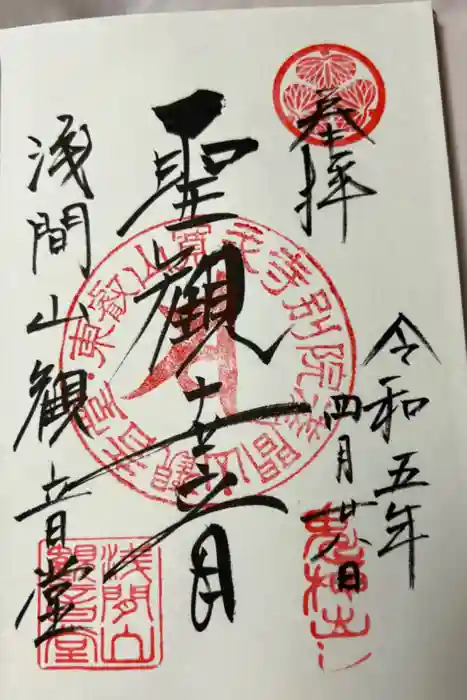 奉拝
令和五年
四月廿八日
鬼押出し
聖観世音
東叡山寛永寺特別院浅間山観音堂
浅間山観音堂
浅間山
観音堂